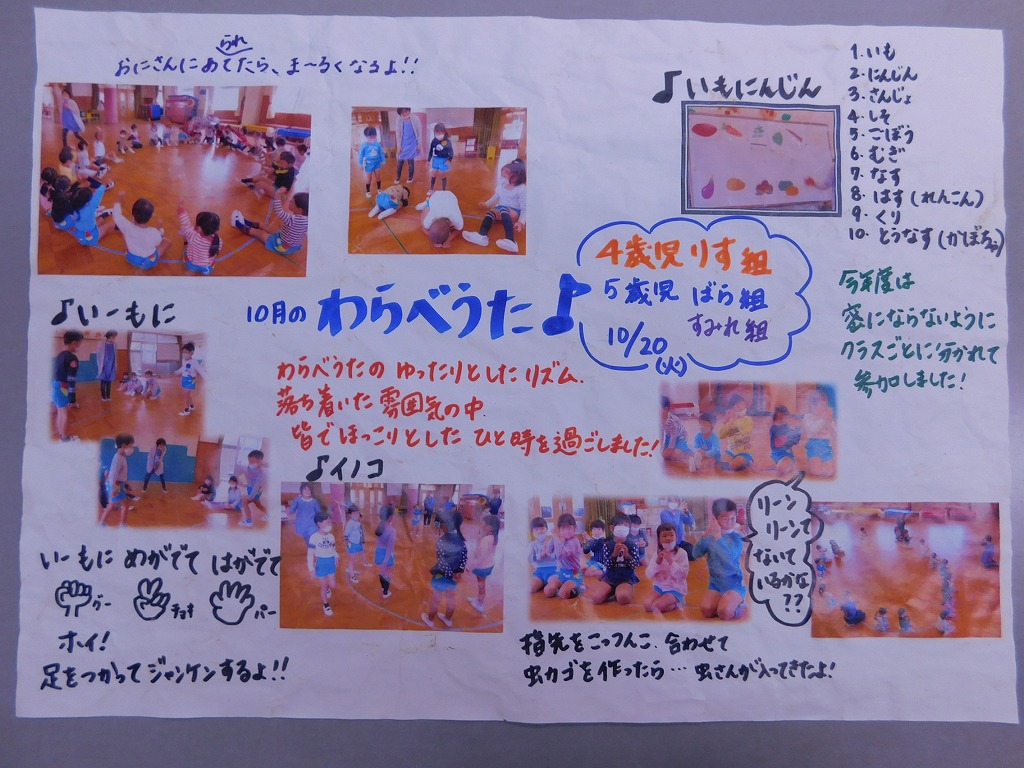 おにさんにあてられたら、ま〜るくなるよ!!
♪いもにんじん
1.いも
2.にんじん
3.さんじょ
4.しそ
5.ごぼう
6.むぎ
7.なす
8.はす(れんこん)
9.くり
10.とうなす(かぼちゃ)
4歳児りす組
5歳児 ばら組
すみれ組
10/20
(火)
10月の わらべうた♪
今年度は
密にならないように
クラスごとに分かれて
参加しました!
わらべうたの ゆったりとしたリズム、
落ち着いた雰囲気の中、
皆でほっこりとした ひと時を過ごしました!
♪いーもに
いーもに めがでて はがでて
グー チョキ パー
ホイ!
足をつかってジャンケンするよ!!
♪イノコ
リーン
リーンて
ないて
いるかな
??
指先をこっつんこ、合わせて
虫カゴを作ったら… 虫さんが入ってきたよ!